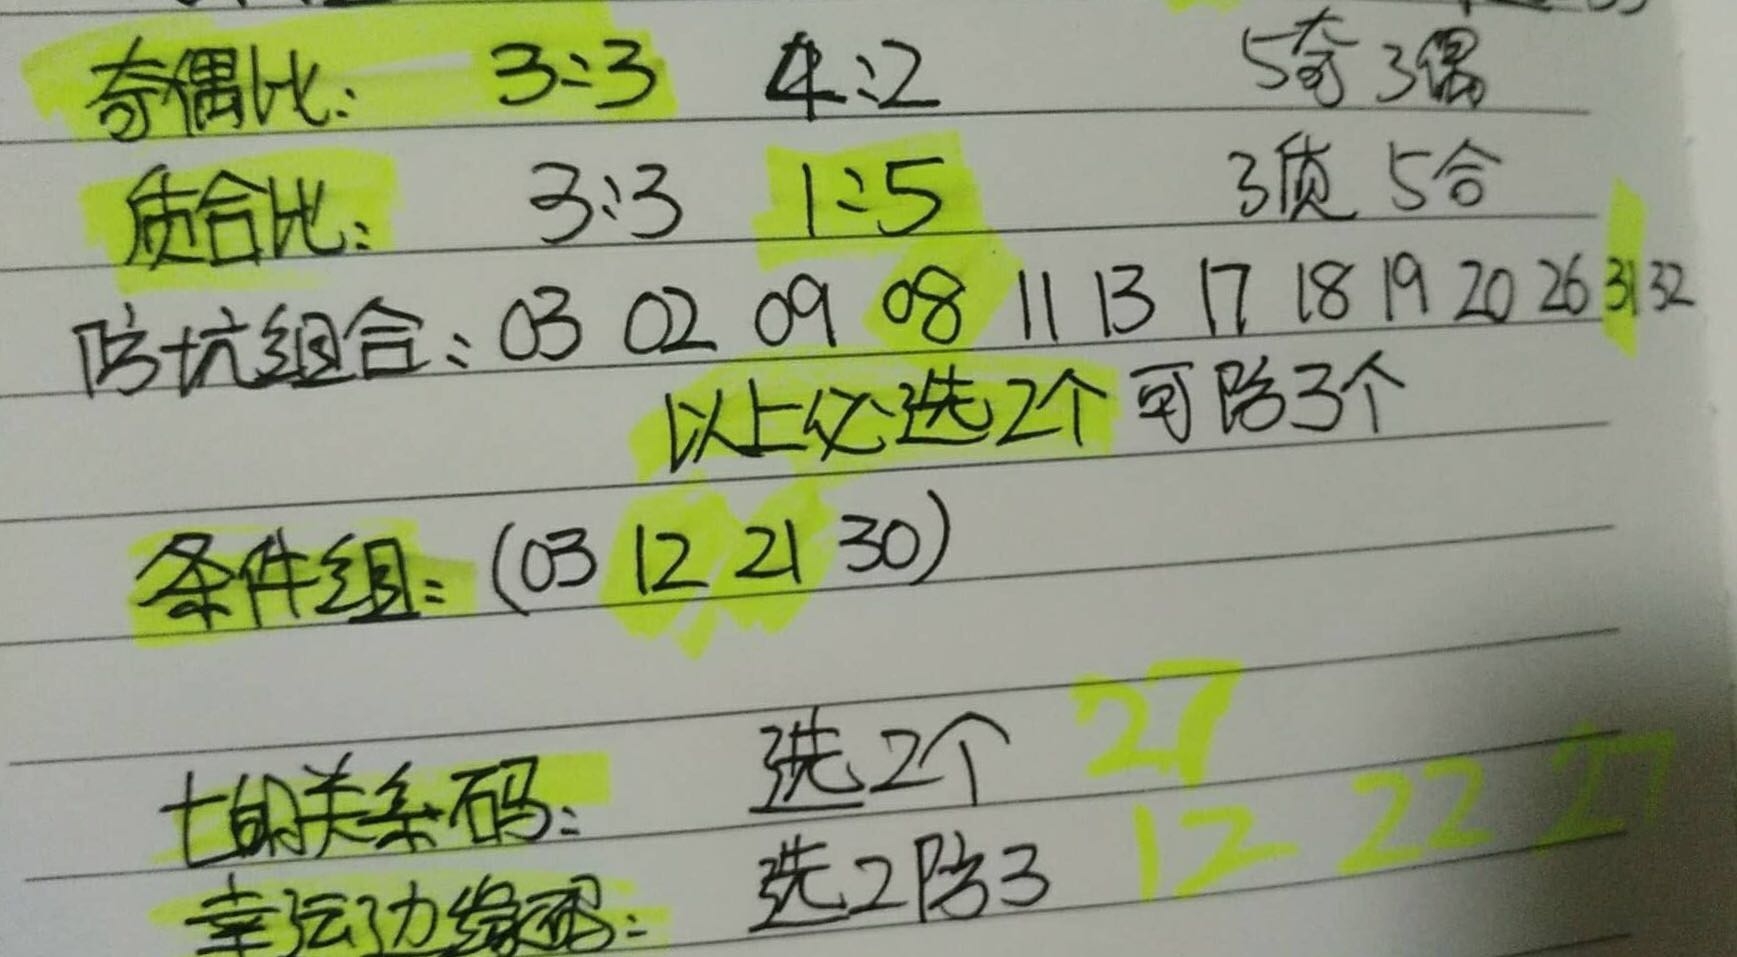 奇偶比: 3:3 4:2 5奇 3偶
质合比: 3:3 1:5 3质 5合
防坑组合: 03 02 09 08 11 13 17 18 19 20 26 31 32
以上必选2个 可防3个
条件组: (03 12 21 30)
七的关系码: 选2个 27
幸运边缘码: 选2防3 12 22 27